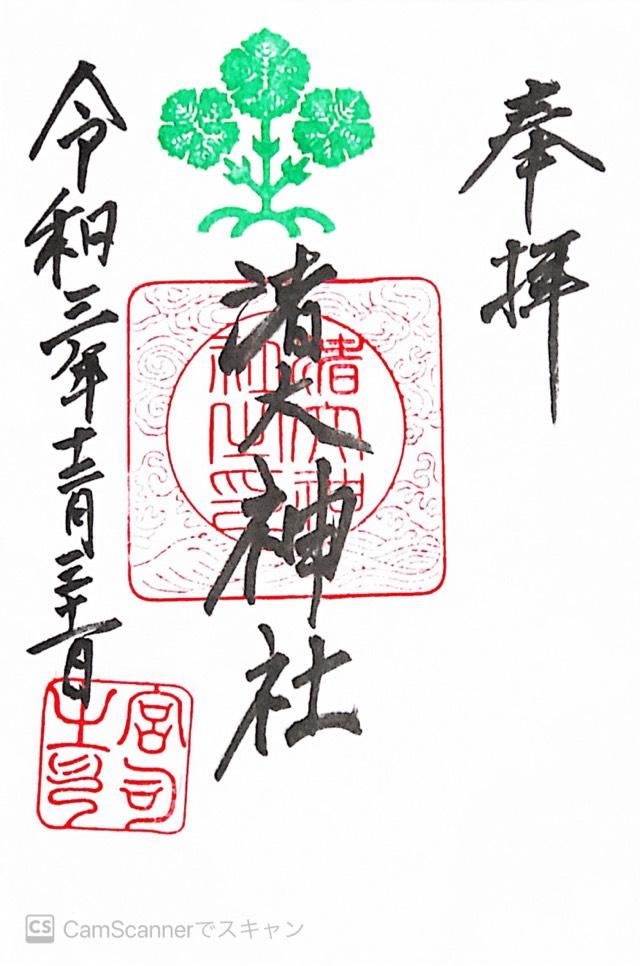 奉拝
渚大神社
令和三年十二月三十一日
渚大神社之印
宮司之印
CS CamScannerでスキャン